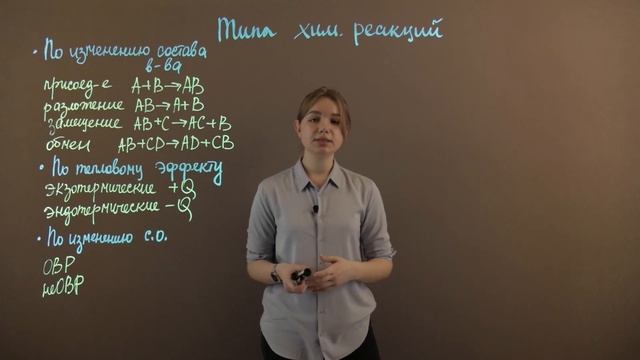 Типы хим. реакций
• По изменению состава
в-ва
присоед-е A+B→AB
разложение AB→A+B
замещение AB+C→AC+B
обмен AB+CD→AD+CB
• По тепловому эффекту
экзотермические +Q
эндотермические -Q
• По изменению с.о.
ОВР
неОВР